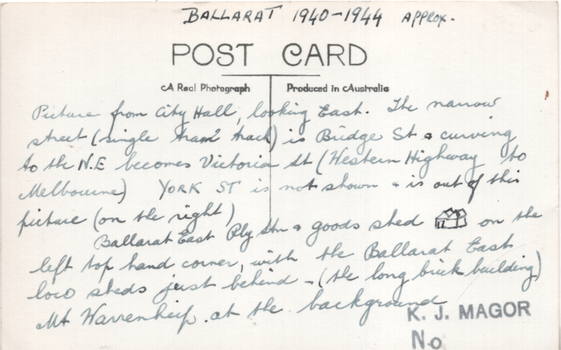 BALLARAT 1940-1944 APPROX.
POST CARD
A Real Photograph Produced in Australia
Picture from City Hall, looking East. The narrow
street (single tram track) is Bridge St & curving
to the N.E becomes Victoria St (Western Highway to
Melbourne) YORK ST is not shown & is out of this
picture (on the right)
Ballarat East Rly Stn & goods shed on the
left top hand corner, with the Ballarat East
loco sheds just behind - (the long brick building)
Mt Warrenheip. at the background
K. J. MAGOR
No